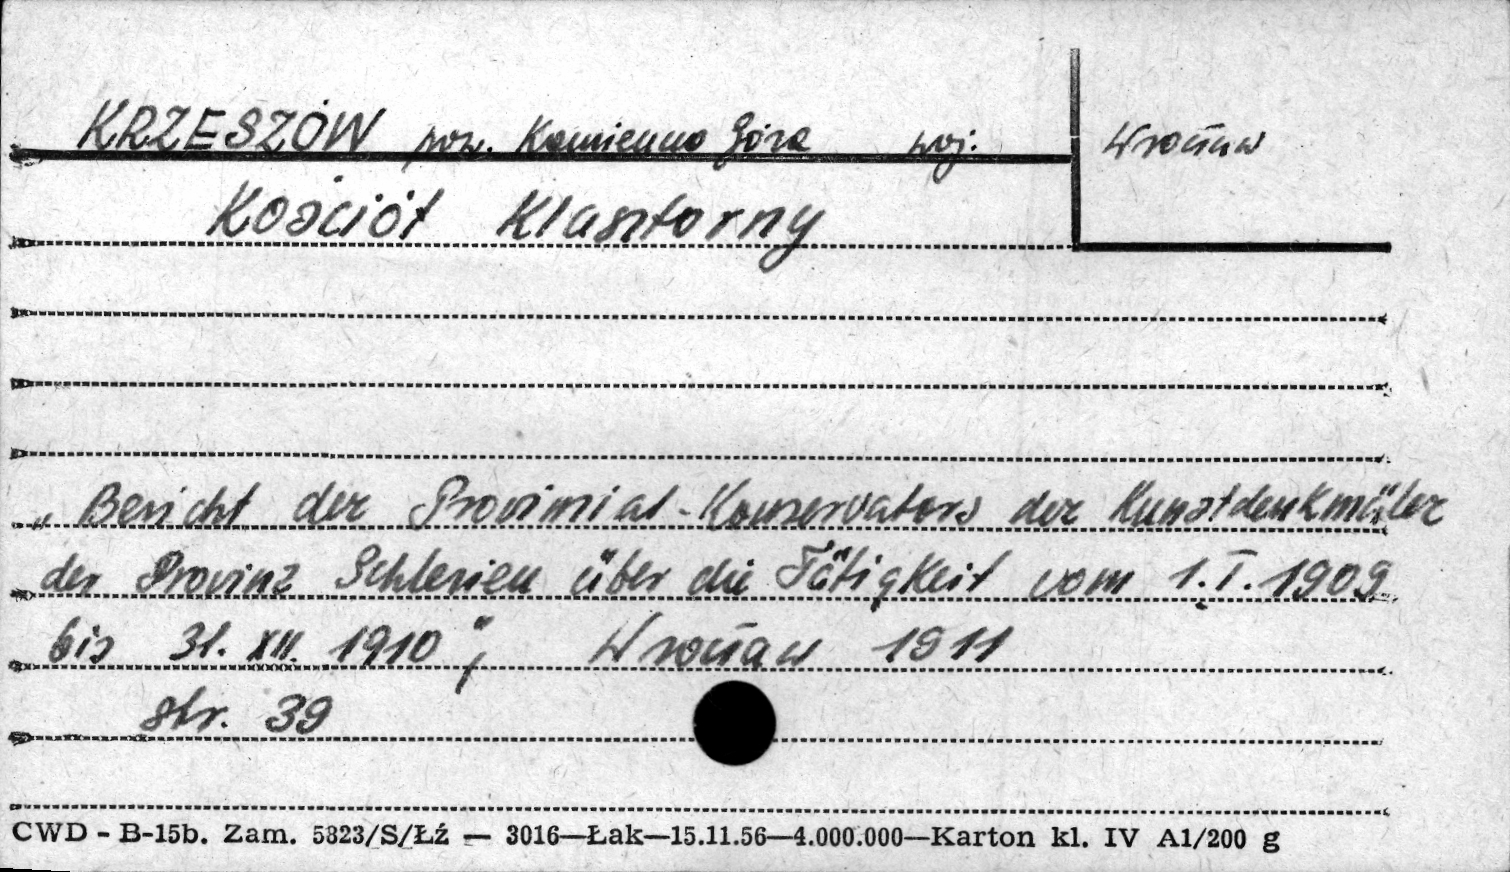 KRZESZÓW pow. Kamienna Góra woj. Wrocław
Kościół Klasztorny
„Bericht der Provinzial-Konservators der Kunstdenkmäler
der Provinz Schlesien über die Tätigkeit vom 1.I.1909
bis 31.XII.1910", Wrocław 1911
str. 39
CWD - B-15b. Zam. 5823/S/Łź — 3016—Łak—15.11.56—4.000.000—Karton kl. IV A1/200 g